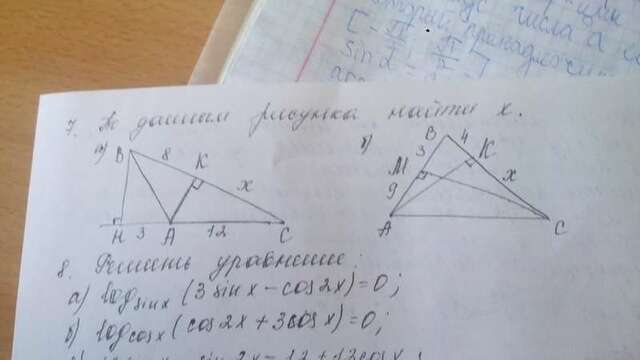 числа а
который принадлежит
sin α =
7. По данным рисунка найти x.
а)
В 8 К x
Н 3 А 12 С
б)
В 4 К x
М 3
9
А С
8. Решить уравнение:
а) log sinx (3 sinx − cos2x) = 0;
б) log cosx (cos2x + 3cosx) = 0;